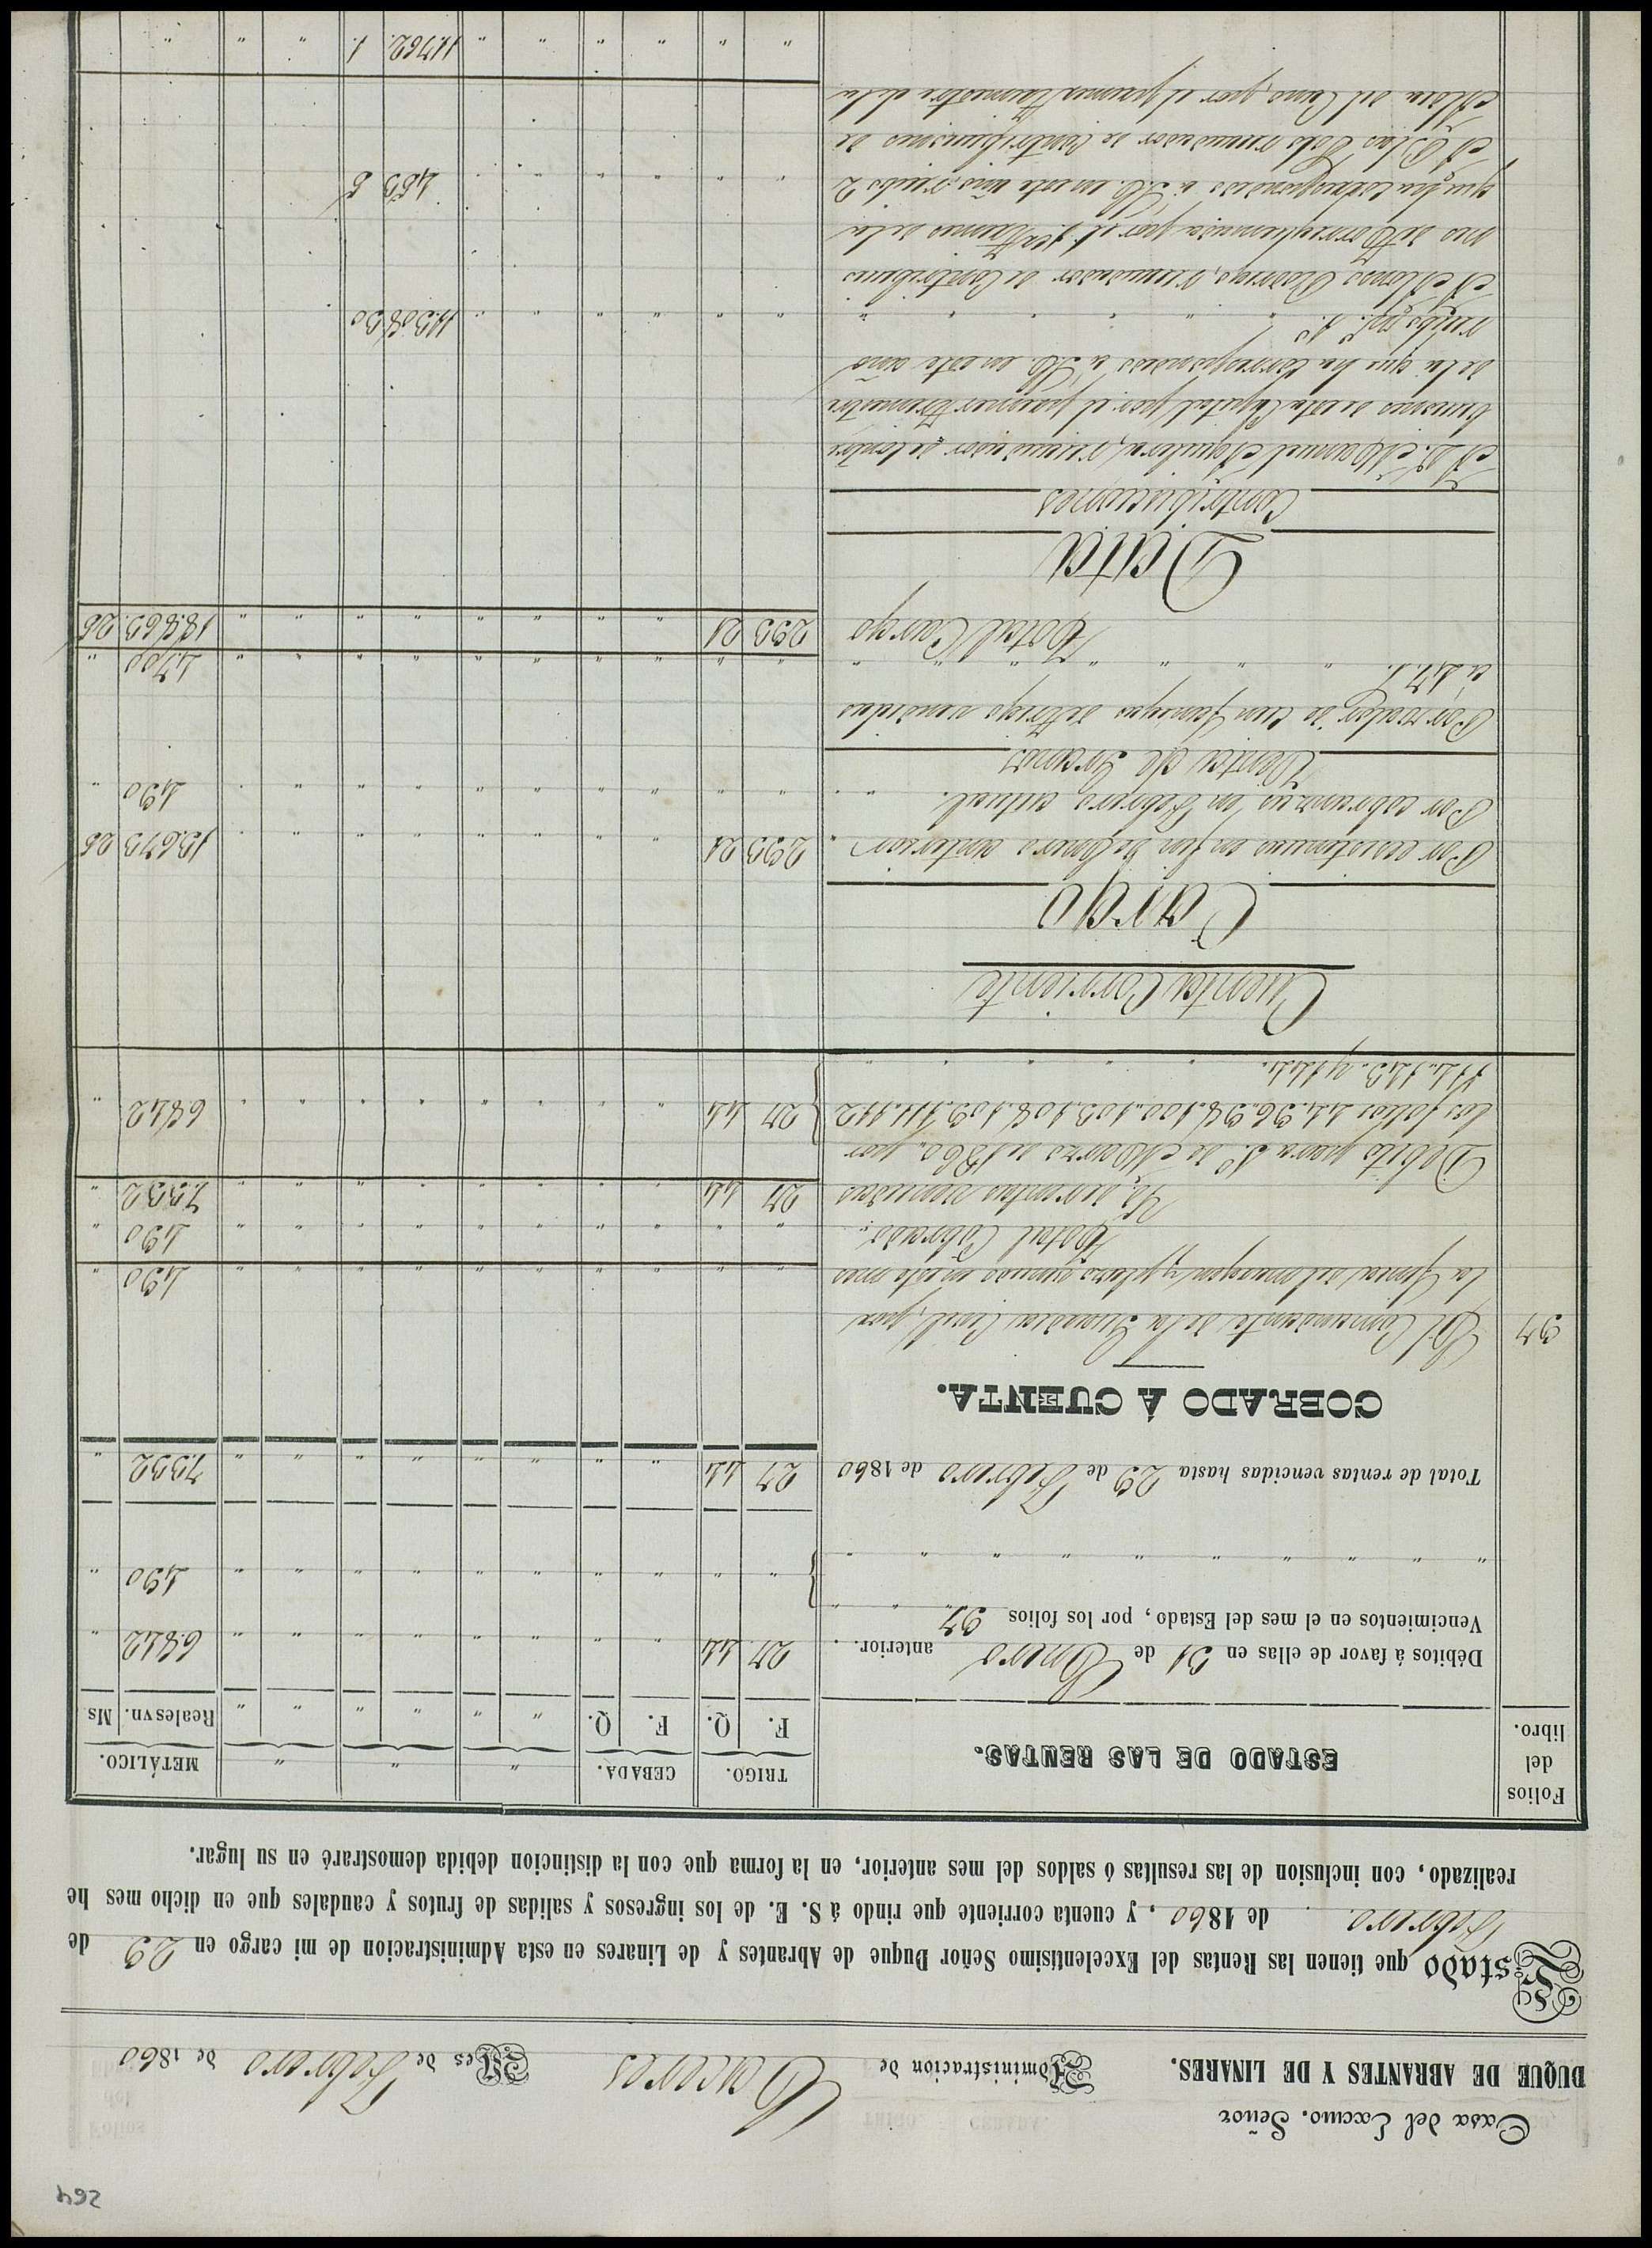 264
Casa del Excmo. Señor
DUQUE DE ABRANTES Y DE LINARES. Administracion de Caceres Mes de Febrero de 1860
Estado que tienen las Rentas del Excelentísimo Señor Duque de Abrantes y de Linares en esta Administracion de mi cargo en 29 de
Febrero. de 1860, y cuenta corriente que rindo á S. E. de los ingresos y salidas de frutos y caudales que en dicho mes he
realizado, con inclusion de las resultas ó saldos del mes anterior, en la forma que con la distincion debida demostraré en su lugar.
Folios del libro. ESTADO DE LAS RENTAS. TRIGO. CEBADA. " " " METÁLICO.
F. Q. F. Q. " " " " " " Reales vn. Ms.
Débitos á favor de ellas en 31 de Enero anterior. 27 44 " " " " " " " " 6.842 "
Vencimientos en el mes del Estado, por los folios 97 " "
" " " " " " " " " " 490 "
Total de rentas vencidas hasta 29 de Febrero de 1860 27 44 " " " " " " " " 7.332 "
COBRADO Á CUENTA.
97 El Comandante de la Guardia Civil, por
la finca del margen y plazo en este mes " " " " " " " " " " 490 "
Total Cobrado " " " " " " " " " " 490 "
Yd. de rentas vencidas 27 44 " " " " " " " " 7.332 "
Débito para 1º de Marzo de 1860, por
los folios 44.96.98.100.105.108.109.111.112 27 44 " " " " " " " " 6842 "
114.143. y 144.
Cuenta Corriente
Cargo
Por existencias en fin de Enero anterior 293 21 " " " " " " " " 13.673 25
Por cobranzas en Febrero actual. " " " " " " " " " " 490 "
Venta de Granos
Por valor de Cien fanegas de trigo vendidas
á 47. r. " " " " " " " " " " 4.700 "
Total Cargo 293 21 " " " " " " " " 18.863 25
Data
Contribuciones
A D. Manuel Aguilera, recaudador de contri
buciones de esta Capital por el primer trimestre
de la que ha correspondido á S.E. en este año
recibo nº. 1º " " " " " " 11.308 30
A Alonso Rodrigo, recaudador de Contribucio
nes de Torrequemada por el 1er. trimes de la
que ha correspondido á S.E. en este año, recibo 2 " " " " " " 453 5
A Blas Polo recaudador de Contribuciones de
Aldea del Cano, por el primer trimestre de la
" " " " " " 11.762. 1. " " " "